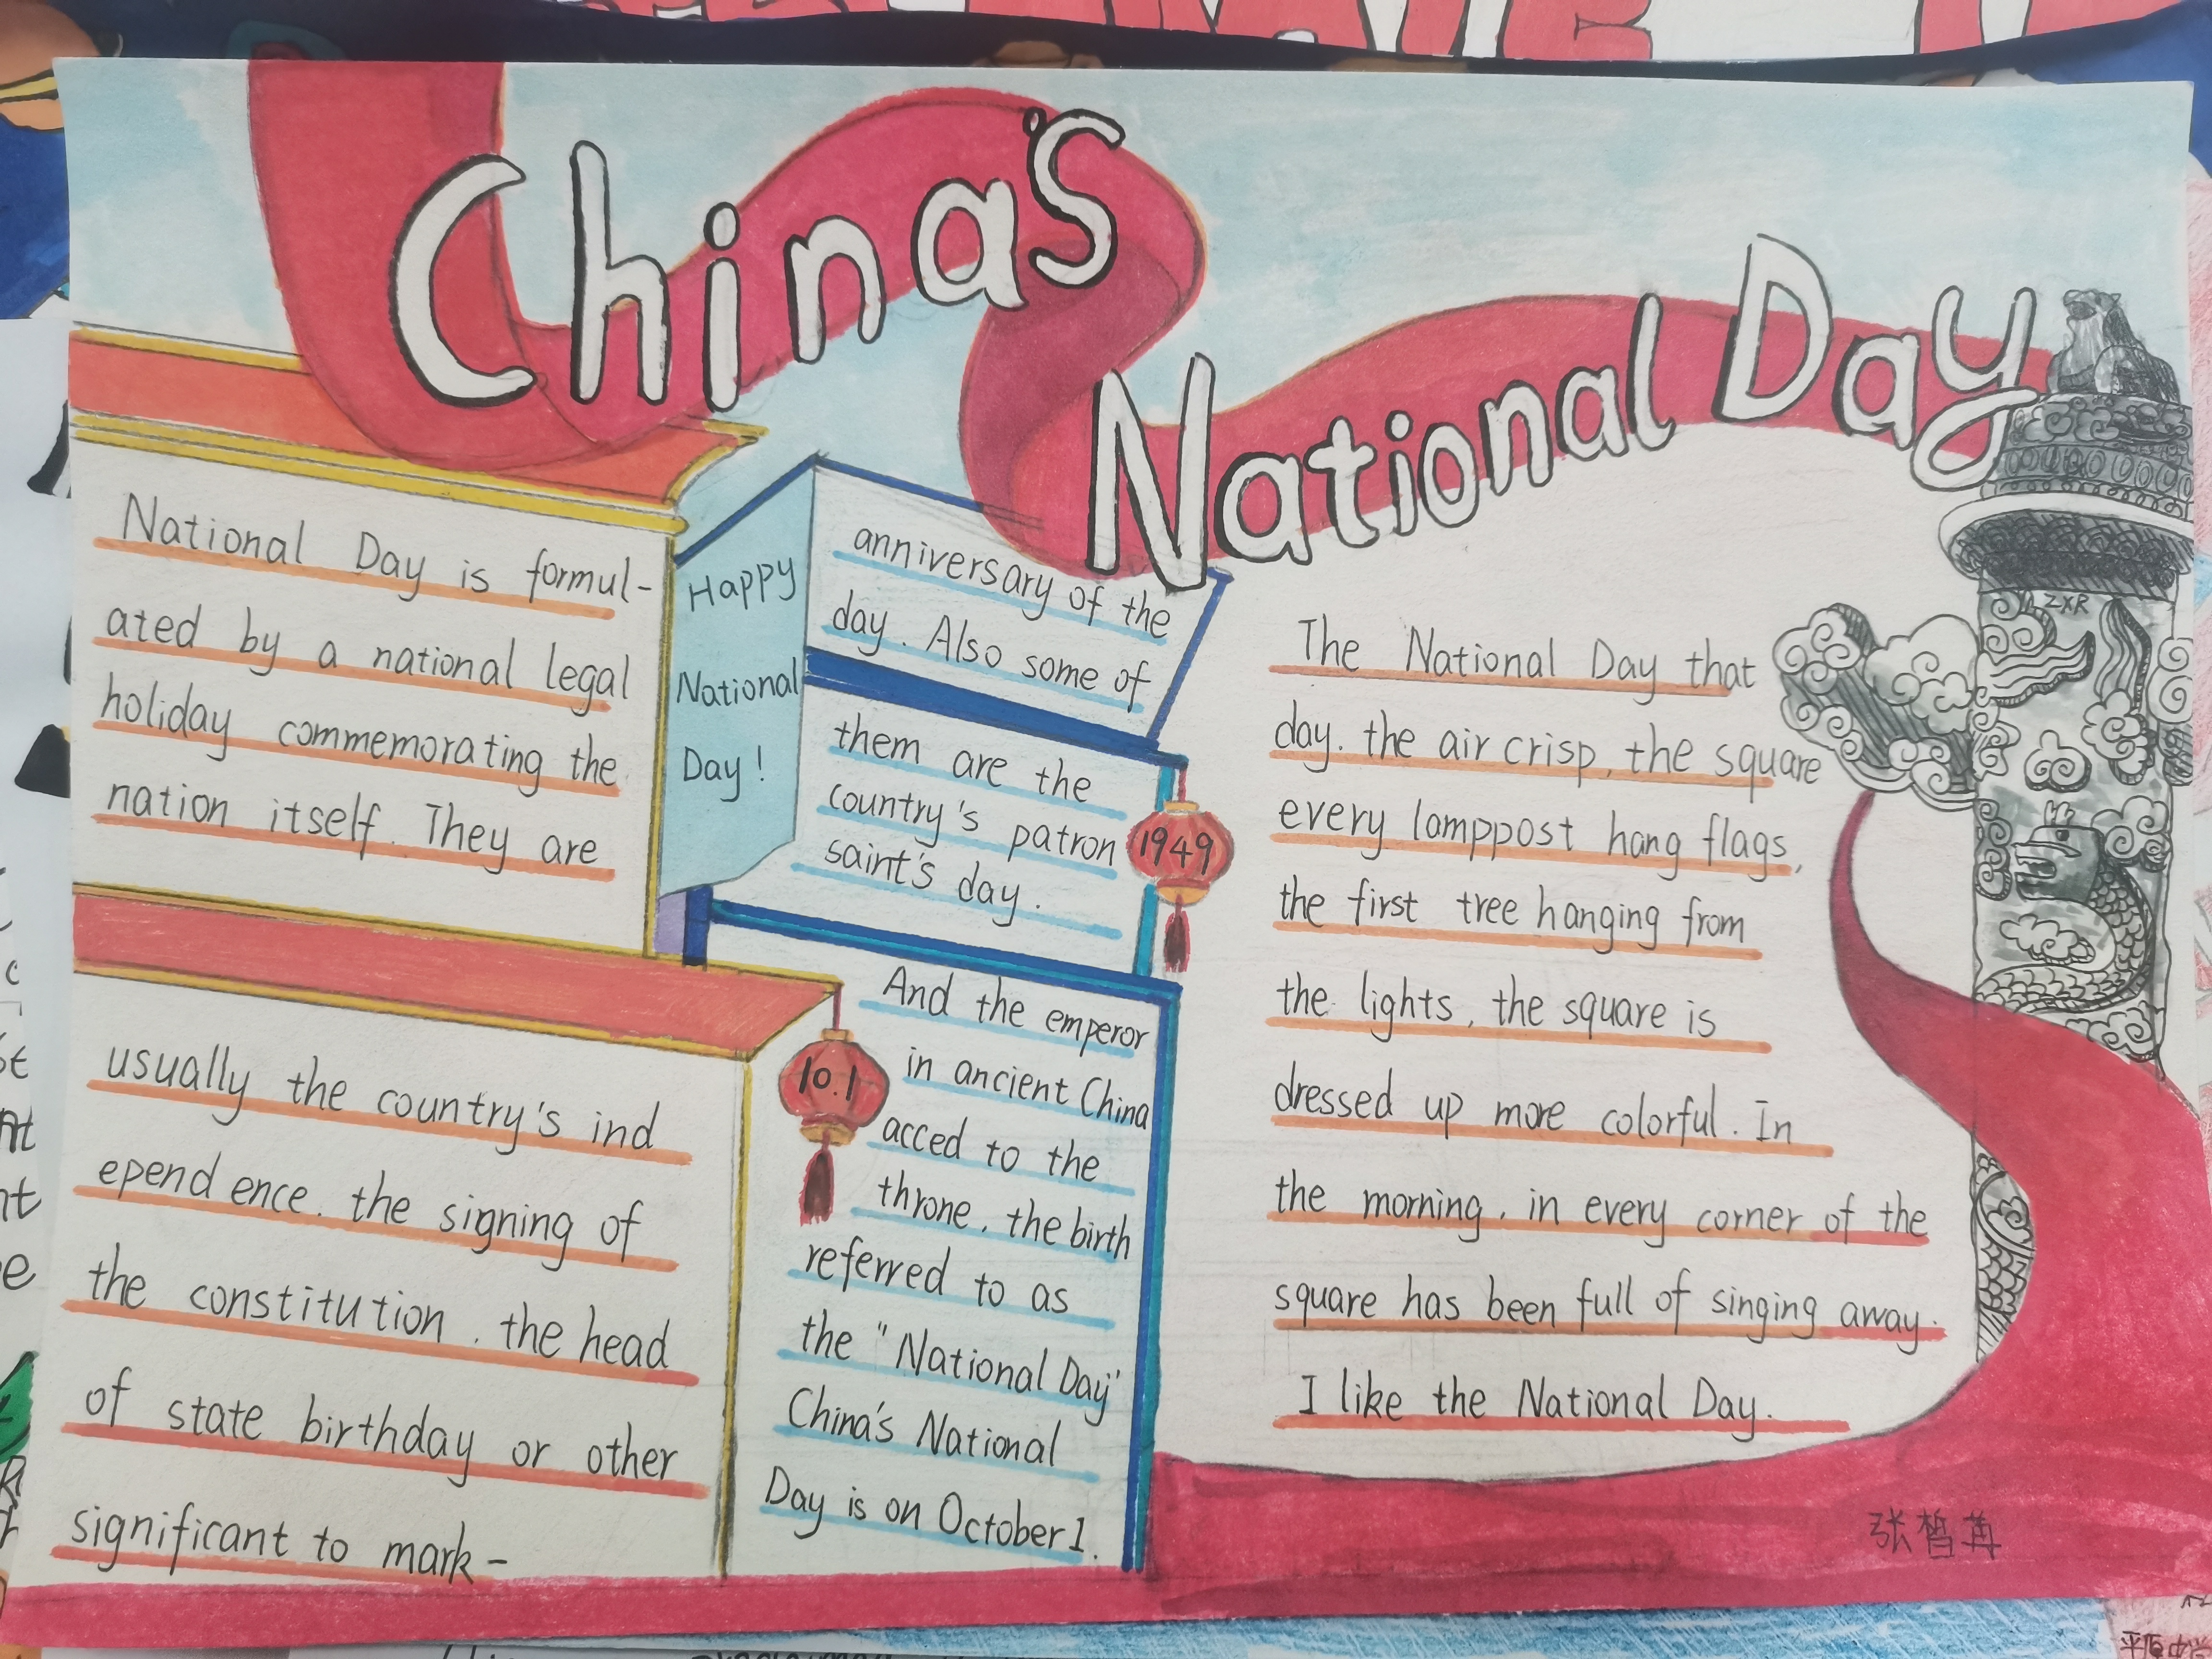 China's
National Day
National Day is formul-
ated by a national legal
holiday commemorating the
nation itself. They are
usually the country's ind
epend ence. the signing of
the constitution. the head
of state birthday or other
significant to mark-
Happy
National
Day!
anniversary of the
day. Also some of
them are the
country's patron
saint's day.
1949
10.1
And the emperor
in ancient China
acced to the
throne. the birth
referred to as
the "National Day"
China's National
Day is on October 1.
The National Day that
day. the air crisp, the square
every lamppost hang flags,
the first tree hanging from
the lights, the square is
dressed up more colorful. In
the morning, in every corner of the
square has been full of singing away.
I like the National Day.
ZXR